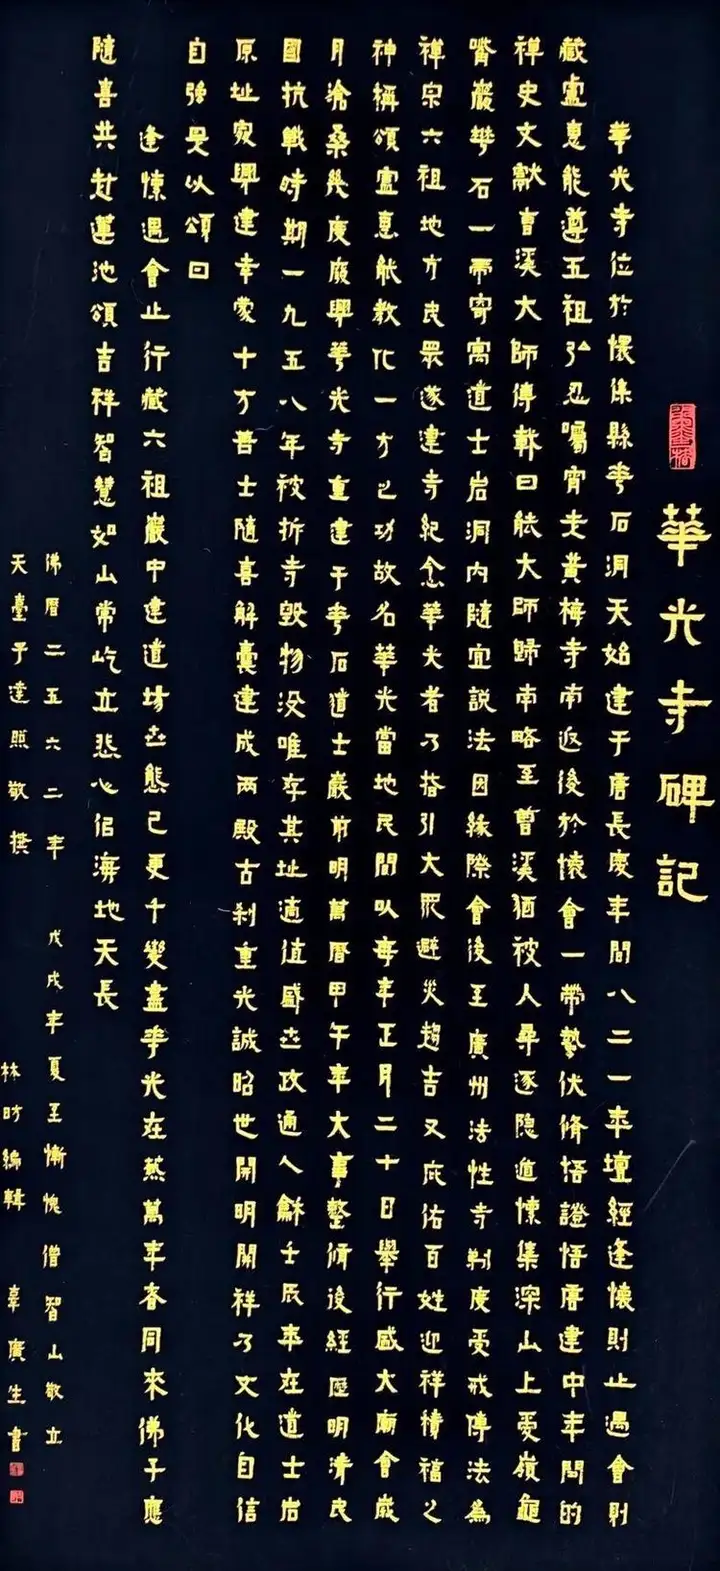 華光寺碑記
華光寺位於懷集縣華石洞天始建于唐長慶年間八二一年壇經逢懷則止遇會則
藏盧惠能遵五祖弘忍囑宵走黃梅寺南返後於懷會一帶蟄伏脩悟證悟唐建中年間的
禅史文獻曹溪大師傳載曰能大師歸南略至曹溪猶被人尋逐隐遁懷集深山上愛嶺龜
嘴巖華石一帶寄寓道士岩洞内隨宜説法因緣際會後至廣州法性寺剃度受戒傳法為
禅宗六祖地方民眾遂建寺紀念華光者乃指引大眾避災趨吉又庇佑百姓迎祥積福之
神稱頌盧惠能教化一方之功故名華光當地民間以每年正月二十日舉行盛大廟會歲
月滄桑幾度廢興華光寺重建于華石道士巖前明萬曆甲午年大事整脩後經歷明清民
國抗戰時期一九五八年被拆寺毀物没唯存其址適值盛世政通人龢壬辰年在道士岩
原址宛興建幸蒙十方善士隨喜解囊建成兩殿古刹重光誠昭世開明開祥乃文化自信
自強是以頌曰
逢懷遇會止行藏六祖巖中建道場世態已更千變盡華光在爇萬年香同來佛子應
隨喜共赴蓮池頌吉祥智慧如山常屹立悲心侶海地天長
佛曆二五六二年 戊戌年夏至慚愧僧智山敬立
天臺子達照敬撰 林昉編輯 章廣生書